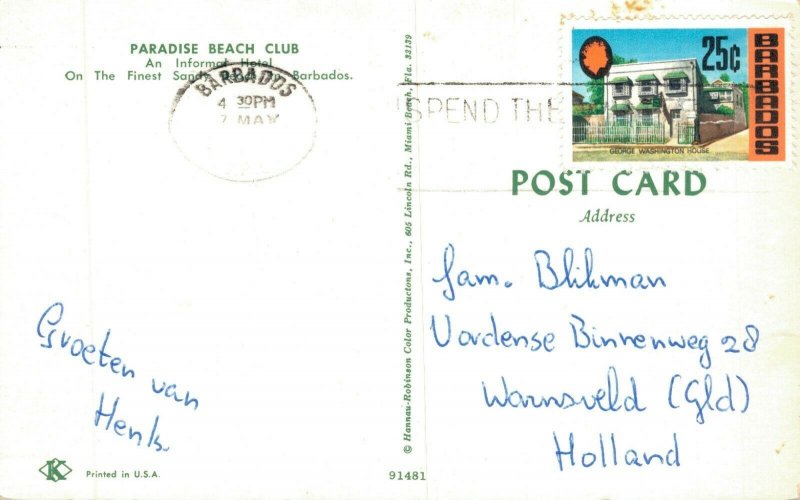 PARADISE BEACH CLUB
An Informal Hotel
On The Finest Sandy Beach in Barbados.
BARBADOS
4 30PM
7 MAY
SPEND THE
25¢
BARBADOS
GEORGE WASHINGTON HOUSE
POST CARD
Address
© Hannau-Robinson Color Productions, Inc., 605 Lincoln Rd., Miami Beach, Fla. 33139
Fam. Blikman
Vordense Binnenweg 28
Warnsveld (Gld)
Holland
Groeten van
Henk.
K
Printed in U.S.A.
91481